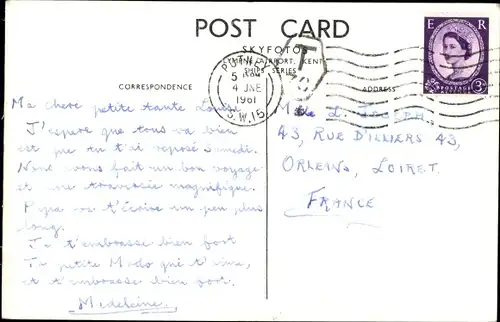 POST CARD
SKYFOTOS
AIRPORT, KENT
SHIPS SERIES
CORRESPONDENCE
ADDRESS
PUTNEY
4 JNE
1961
S.W.15
T
E R
POSTAGE
3D
Ma chere petite tante
J'espere que tous va bien
est que tu t'ai reposé Samedi.
Nous avons fait un bon voyage
et une traversée magnifique.
Papa va t'écrire un peu plus
long.
Je t'embrasse bien fort
Ta petite Mado qui t'aime,
et t'embrasse bien fort.
Madeleine.
L. JOSEPH
43, RUE D'ILLIERS 43,
ORLEANS, LOIRET.
FRANCE